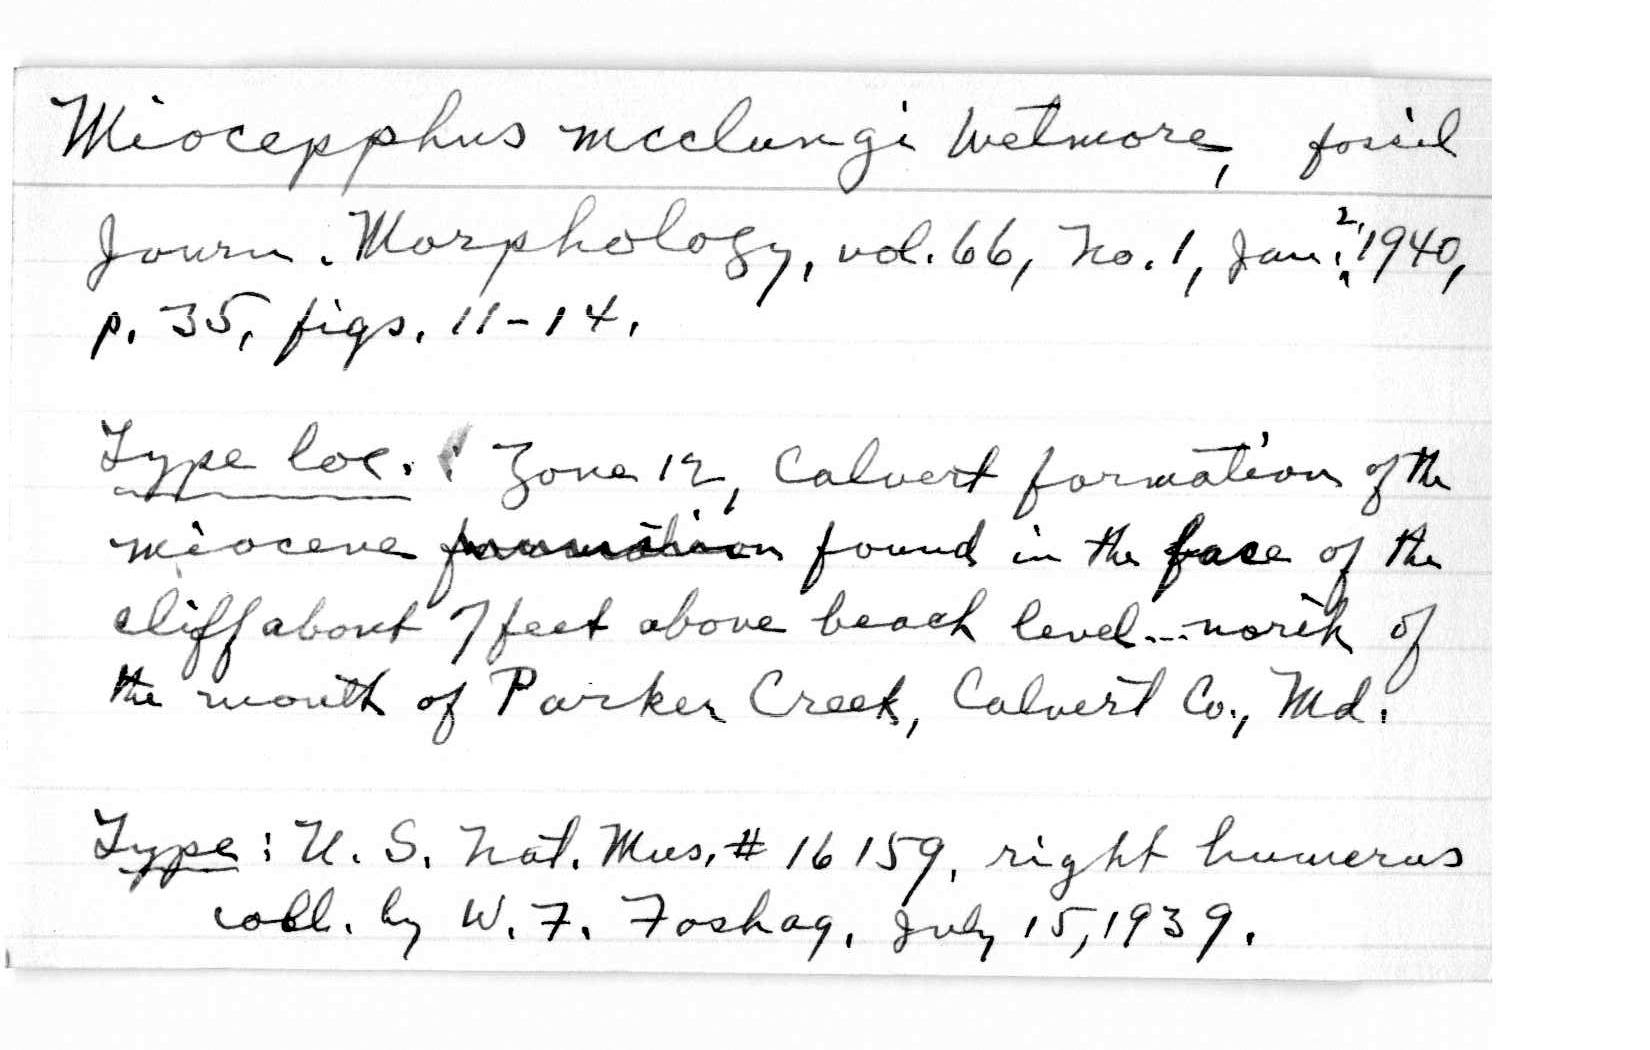 Miocepphus mcclungi Wetmore, fossil
Journ. Morphology, vol. 66, No. 1, Jan. 2, 1940,
p. 35, figs. 11-14.
Type loc.: Zone 12, Calvert formation of the
miocene formation found in the face of the
cliff about 7 feet above beach level...north of
the mouth of Parker Creek, Calvert Co., Md.
Type: U. S. Nat. Mus. # 16159, right humerus
coll. by W. F. Foshag, July 15, 1939.